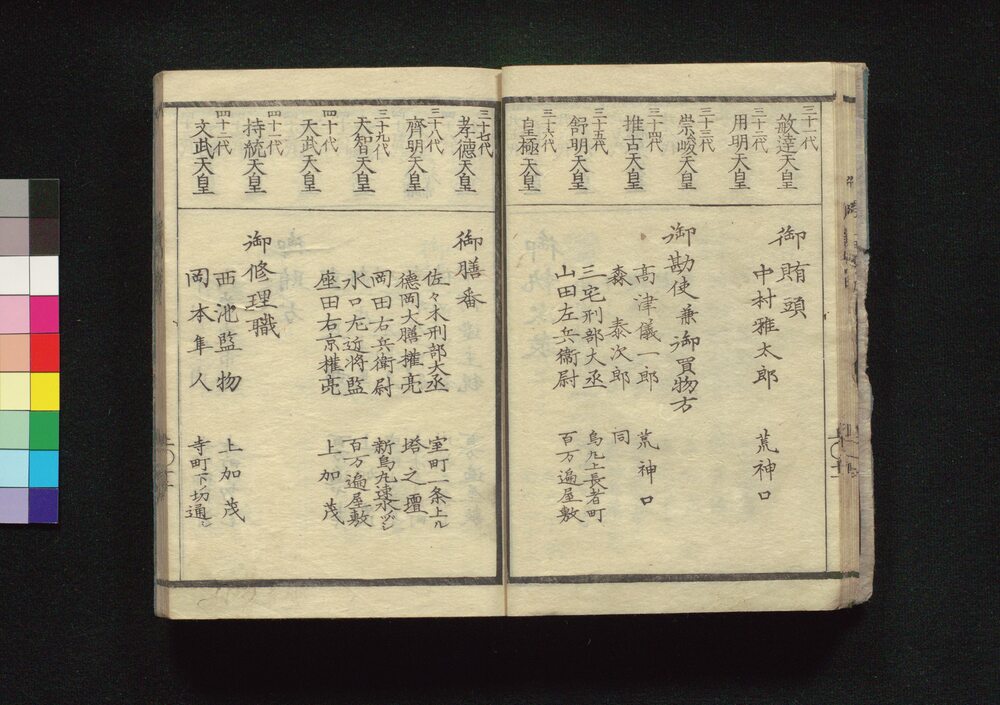 三十一代
敏達天皇
三十二代
用明天皇
三十三代
崇峻天皇
三十四代
推古天皇
三十五代
舒明天皇
三十六代
皇極天皇
御賄頭
中村雅太郎 荒神口
御勘使兼御買物方
高津儀一郎 荒神口
森泰次郎 同
三宅刑部大丞 烏丸上長者町
山田左兵衞尉 百万遍屋敷
三十七代
孝德天皇
三十八代
齊明天皇
三十九代
天智天皇
四十代
天武天皇
四十一代
持統天皇
四十二代
文武天皇
御膳番
佐々木刑部大丞 室町一条上ル
德岡大膳権亮 塔之壇
岡田右兵衞尉 新烏丸速水ヅシ
水口左近將監 百万遍屋敷
座田右京権亮 上加茂
御修理職
西池監物 上加茂
岡本隼人 寺町下切通シ